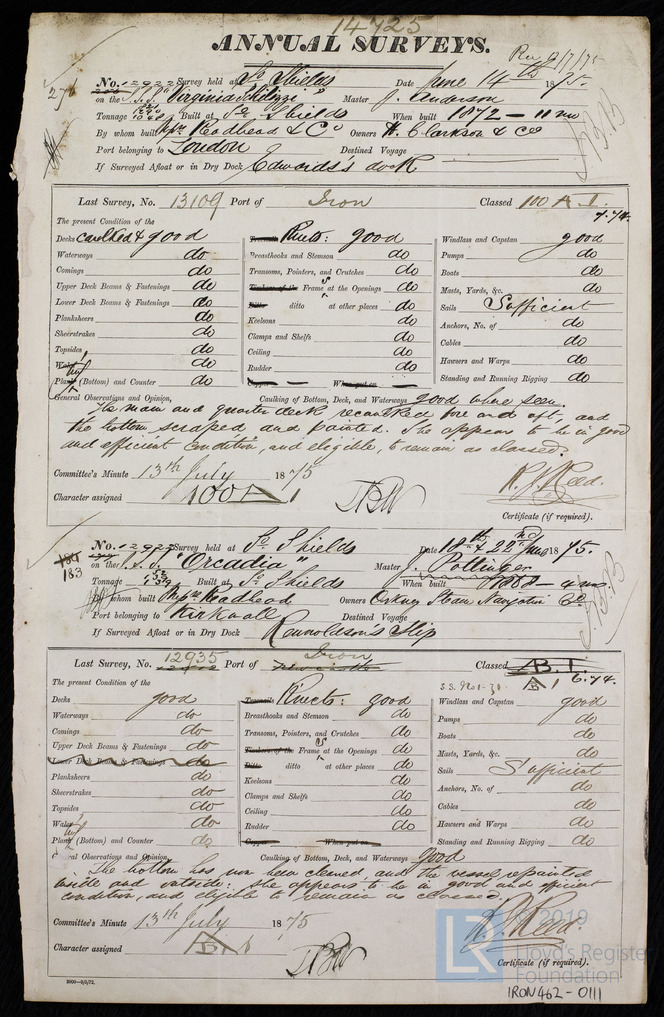 14725
ANNUAL SURVEYS.
Rec 9/7/75
No. 12922 Survey held at So. Shields Date June 14th 1875.
on the S.S. "Virginia Schilizzi" Master J. Anderson
Tonnage Built at So. Shields When built 1872 – 11 mo
By whom built Messrs Readhead & Co Owners H. Clarkson & Co
Port belonging to London Destined Voyage
If Surveyed Afloat or in Dry Dock Edwards's dock
Last Survey, No. 13109 Port of Iron Classed 100 A 1.
7.74.
The present Condition of the
Decks caulked & good
Waterways do
Comings do
Upper Deck Beams & Fastenings do
Lower Deck Beams & Fastenings do
Planksheers do
Sheerstrakes do
Topsides do
Wales do
Plank (Bottom) and Counter do
Treenails Rivets: good
Breasthooks and Stemson do
Transoms, Pointers, and Crutches do
Timbers of the Frames at the Openings do
Ditto ditto at other places do
Keelsons do
Clamps and Shelfs do
Ceiling do
Rudder do
Copper When put on
Windlass and Capstan good
Pumps do
Boats do
Masts, Yards, &c. do
Sails Sufficient
Anchors, No. of do
Cables do
Hawsers and Warps do
Standing and Running Rigging do
General Observations and Opinion, Caulking of Bottom, Deck, and Waterways good where seen.
The main and quarter deck recaulked fore and aft, and
the bottom scraped and painted. She appears to be in good
and efficient condition, and eligible, to remain as classed.
Committee's Minute 13th July 1875
Character assigned 100 A 1
R. J. Reed.
Certificate (if required).
No. 12922 Survey held at So. Shields Date 18th & 22nd June 1875.
183
on the S.S. "Orcadia" Master J. Pottinger
Tonnage Built at So. Shields When built 1868 – 4 mo.
By whom built Messrs Readhead Owners Orkney Steam Navigation Co.
Port belonging to Kirkwall Destined Voyage
If Surveyed Afloat or in Dry Dock Rennoldson's Slip
Last Survey, No. 12935 Port of Iron Classed B. 1.
S.S. No 1-71 A 1 6.74.
The present Condition of the
Decks good
Waterways do
Comings do
Upper Deck Beams & Fastenings do
Lower Deck Beams & Fastenings do
Planksheers do
Sheerstrakes do
Topsides do
Wales do
Plank (Bottom) and Counter do
Treenails Rivets: good
Breasthooks and Stemson do
Transoms, Pointers, and Crutches do
Timbers of the Frames at the Openings do
Ditto ditto at other places do
Keelsons do
Clamps and Shelfs do
Ceiling do
Rudder do
Copper When put on
Windlass and Capstan good
Pumps do
Boats do
Masts, Yards, &c. do
Sails Sufficient
Anchors, No. of do
Cables do
Hawsers and Warps do
Standing and Running Rigging do
General Observations and Opinion, Caulking of Bottom, Deck, and Waterways good
The bottom has now been cleaned, and the vessel repainted
inside and outside: she appears to be in good and efficient
condition, and eligible to remain as classed.
Committee's Minute 13th July 1875
Character assigned B 1
R. J. Reed.
Certificate (if required).
LR © 2019
Lloyd's Register
Foundation
IRON 462 - 0111